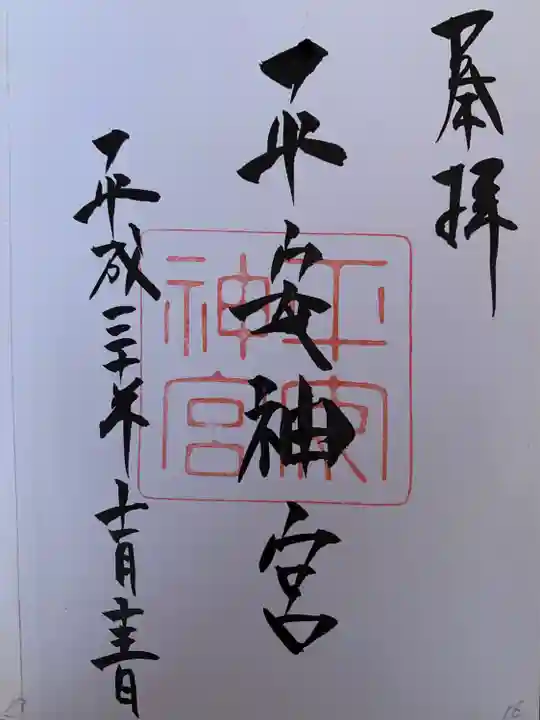 奉拝
平安神宮
平安
神宮
平成三十年十一月十三日
16